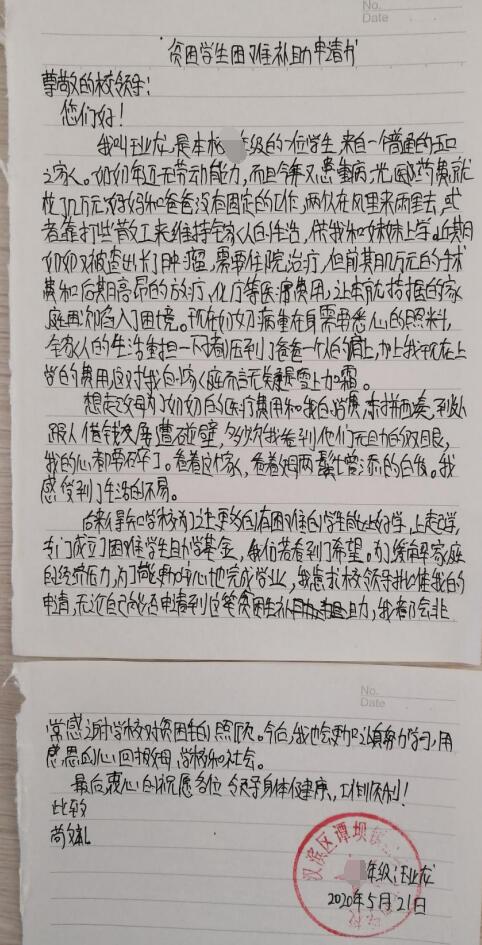 No.
Date
贫困学生困难补助申请书
尊敬的校领导:
您们好!
我叫汪业龙,是本校 年级的一位学生,来自一个普通的五口
之家人。奶奶年迈无劳动能力,而且今年又患重病,光医药费就
花了几万元,妈妈和爸爸没有固定的工作,两人在风里来雨里去,或
者靠打些散工来维持全家人的生活,供我和妹妹上学。近期
奶奶又被查出长了肿瘤,需要住院治疗,但前期几万元的手术
费和后期高昂的放疗、化疗等医治费用,让本就拮据的家
庭再次陷入了困境。现在奶奶病重在身需要悉心的照料,
全家人的生活重担一下都压到了爸爸一个人的肩上,加上我现在上
学的费用这对我的家庭而言无疑是雪上加霜。
想起父母为了奶奶的医疗费用和我的学费,东拼西凑,到处
跟人借钱交房遭碰壁,多少次我看到他们无助的双眼,
我的心都要碎了。看着这个家,看着父母两鬓曾添的白发。我
感受到了生活的不易。
后来得知学校为了让更多的有困难的学生能上好学,上起学,
专门成立了困难学生助学基金,我仿若看到了希望。为了缓解家庭
的经济压力,为了能更加安心地完成学业,我恳求校领导批准我的
申请,无论自己能否申请到这笔贫困生补助,我都会非
No.
Date
常感谢学校对贫困生的照顾。今后,我也会更加认真努力学习,用
感恩的心回报父母,学校和社会。
最后,衷心的祝愿各位领导身体健康,工作顺利!
此致
敬礼
汉滨区谭坝镇
年级汪业龙
2020年5月21日